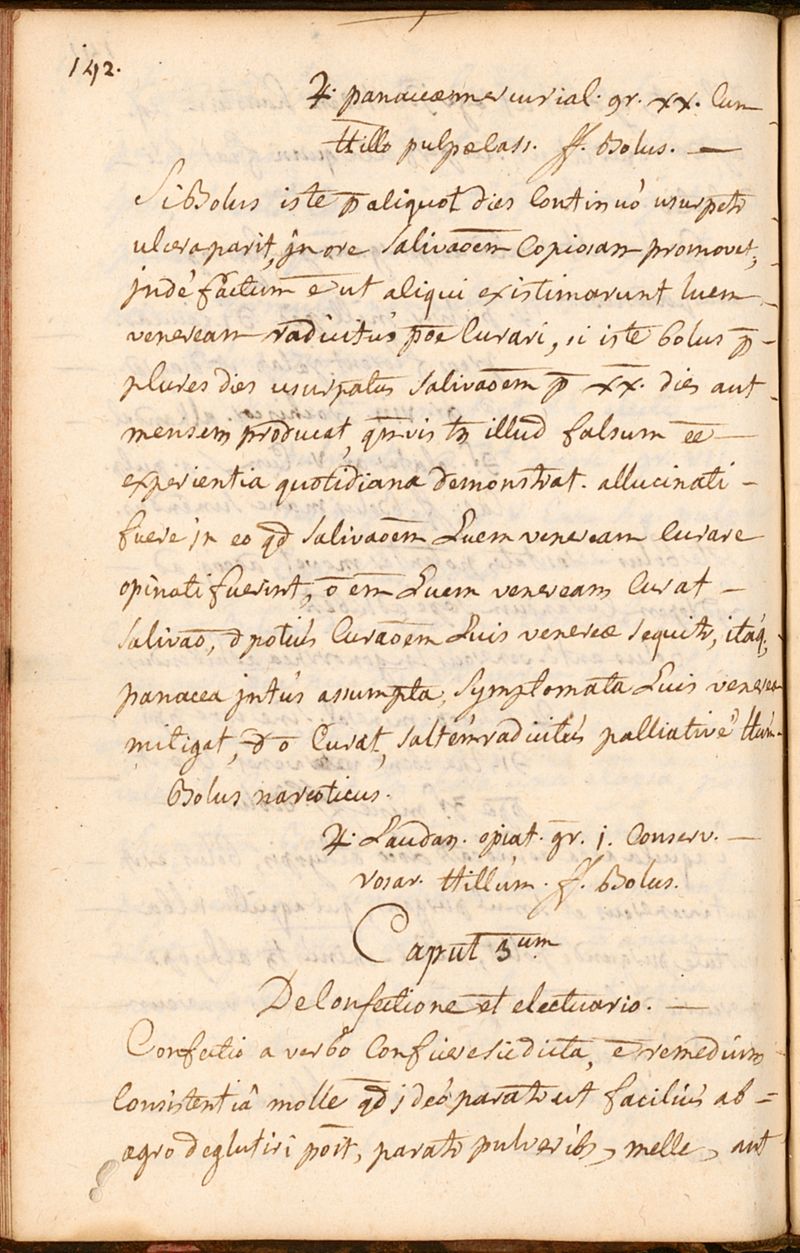 142.
♃. panaceæ mercurial. gr. xx. Cum
ttillo pulpæ cass. ff. Bolus. —
Si Bolus iste p̄ aliquot dies Continuò usurpetr
ulcera parit, jn ore Salivaōem Copiosam promovet,
jndè factum ē ut aliqui existimarunt luem
veneream radicitùs pōe Curari, si iste bolus p̄ -
plures dies usurpatus Salivaōem p̄ xx. dies aut -
mensem producat, qmvis tn illud falsum ēē —
experientia quotidiana demonstrat. allucinati -
fuere jn eo qd Salivaōem Luem veneream Curare
opinati fuerint, ō em̄ Luem veneream Curat -
Salivaō, d potiùs Curaōem Luis venereæ sequitr, itáq,
panacea jntùs assumpta, Symptomata Luis venereæ
mitigat, d ō Curat, saltem radicitùs palliativè ttùm.
Bolus narcoticus.
♃. Laudan. opiat. gr. j. Conserv. —
rosar. ttillùm. ff. Bolus.
Caput 3um
De Confectione et electuario. —
Confectio a verbo Conficere sic dicta, ē remedium
Consistentiâ molle qd jdeò paratr ut faciliùs ab =
ægro deglutiri pōit, paratr pulveribs, melle, aut